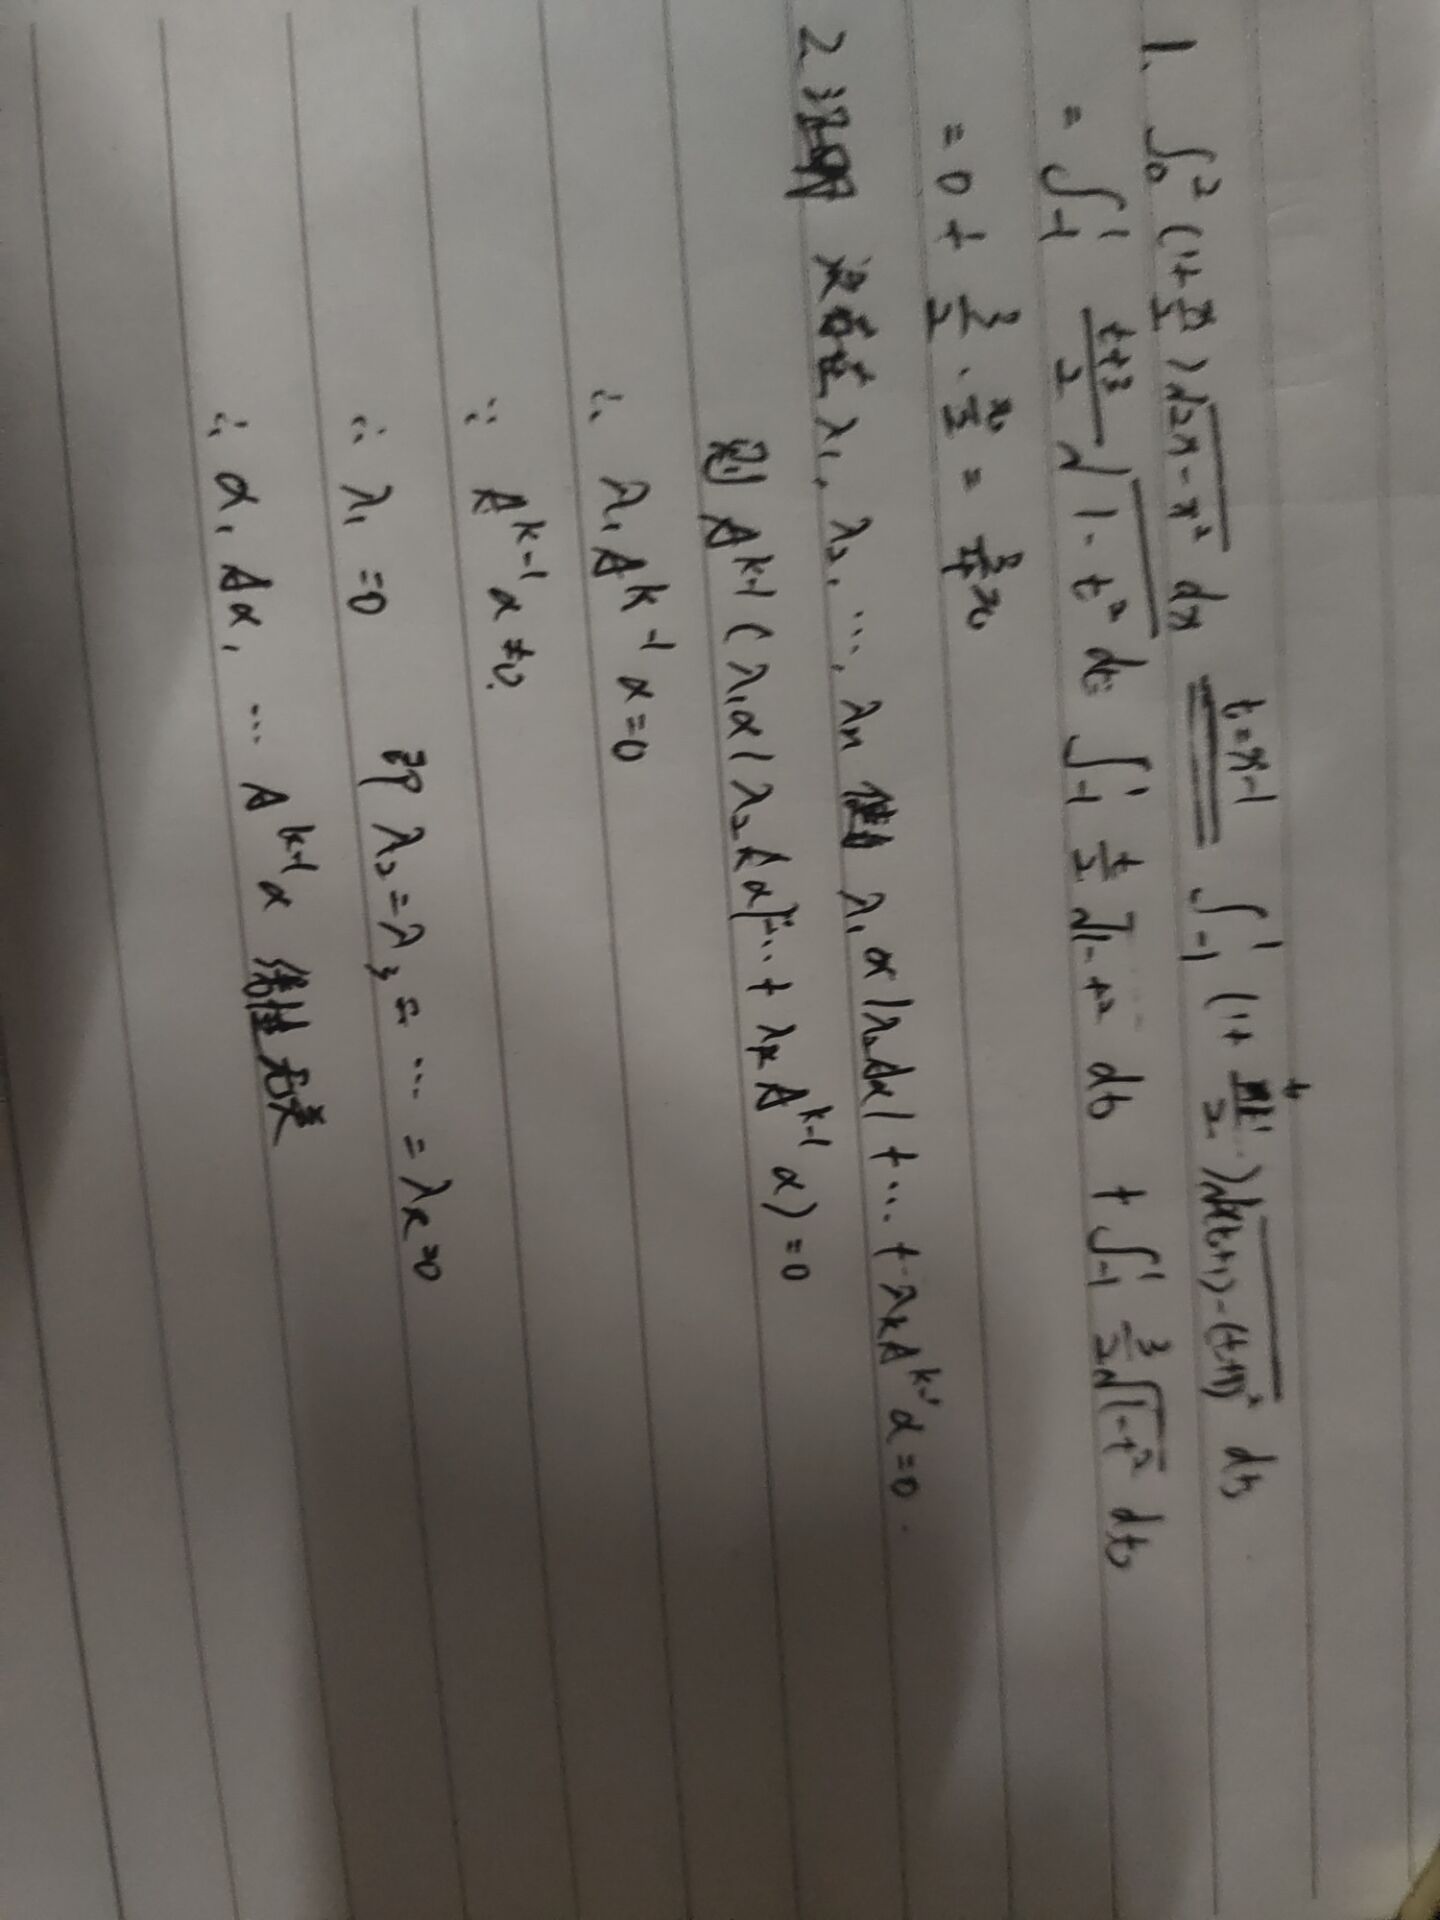 1. ∫₀² (1+x/2)√(2x-x²) dx  t=x-1  ∫₋₁¹ (1+ (t+1)/2 )√(2(t+1)-(t+1)²) dt
= ∫₋₁¹ (t+3)/2 √(1-t²) dt = ∫₋₁¹ t/2 √(1-t²) dt + ∫₋₁¹ 3/2 √(1-t²) dt
= 0 + 3/2 · π/2 = 3/4 π
2 证明 设存在 λ₁, λ₂, …, λₙ 使 λ₁α+λ₂Aα+…+λₖAᵏ⁻¹α=0.
则 Aᵏ⁻¹(λ₁α+λ₂Aα+…+λₖAᵏ⁻¹α)=0
∴ λ₁Aᵏ⁻¹α=0
∵ Aᵏ⁻¹α≠0.
∴ λ₁=0 即 λ₂=λ₃=…=λₖ=0
∴ α, Aα, … Aᵏ⁻¹α 线性无关